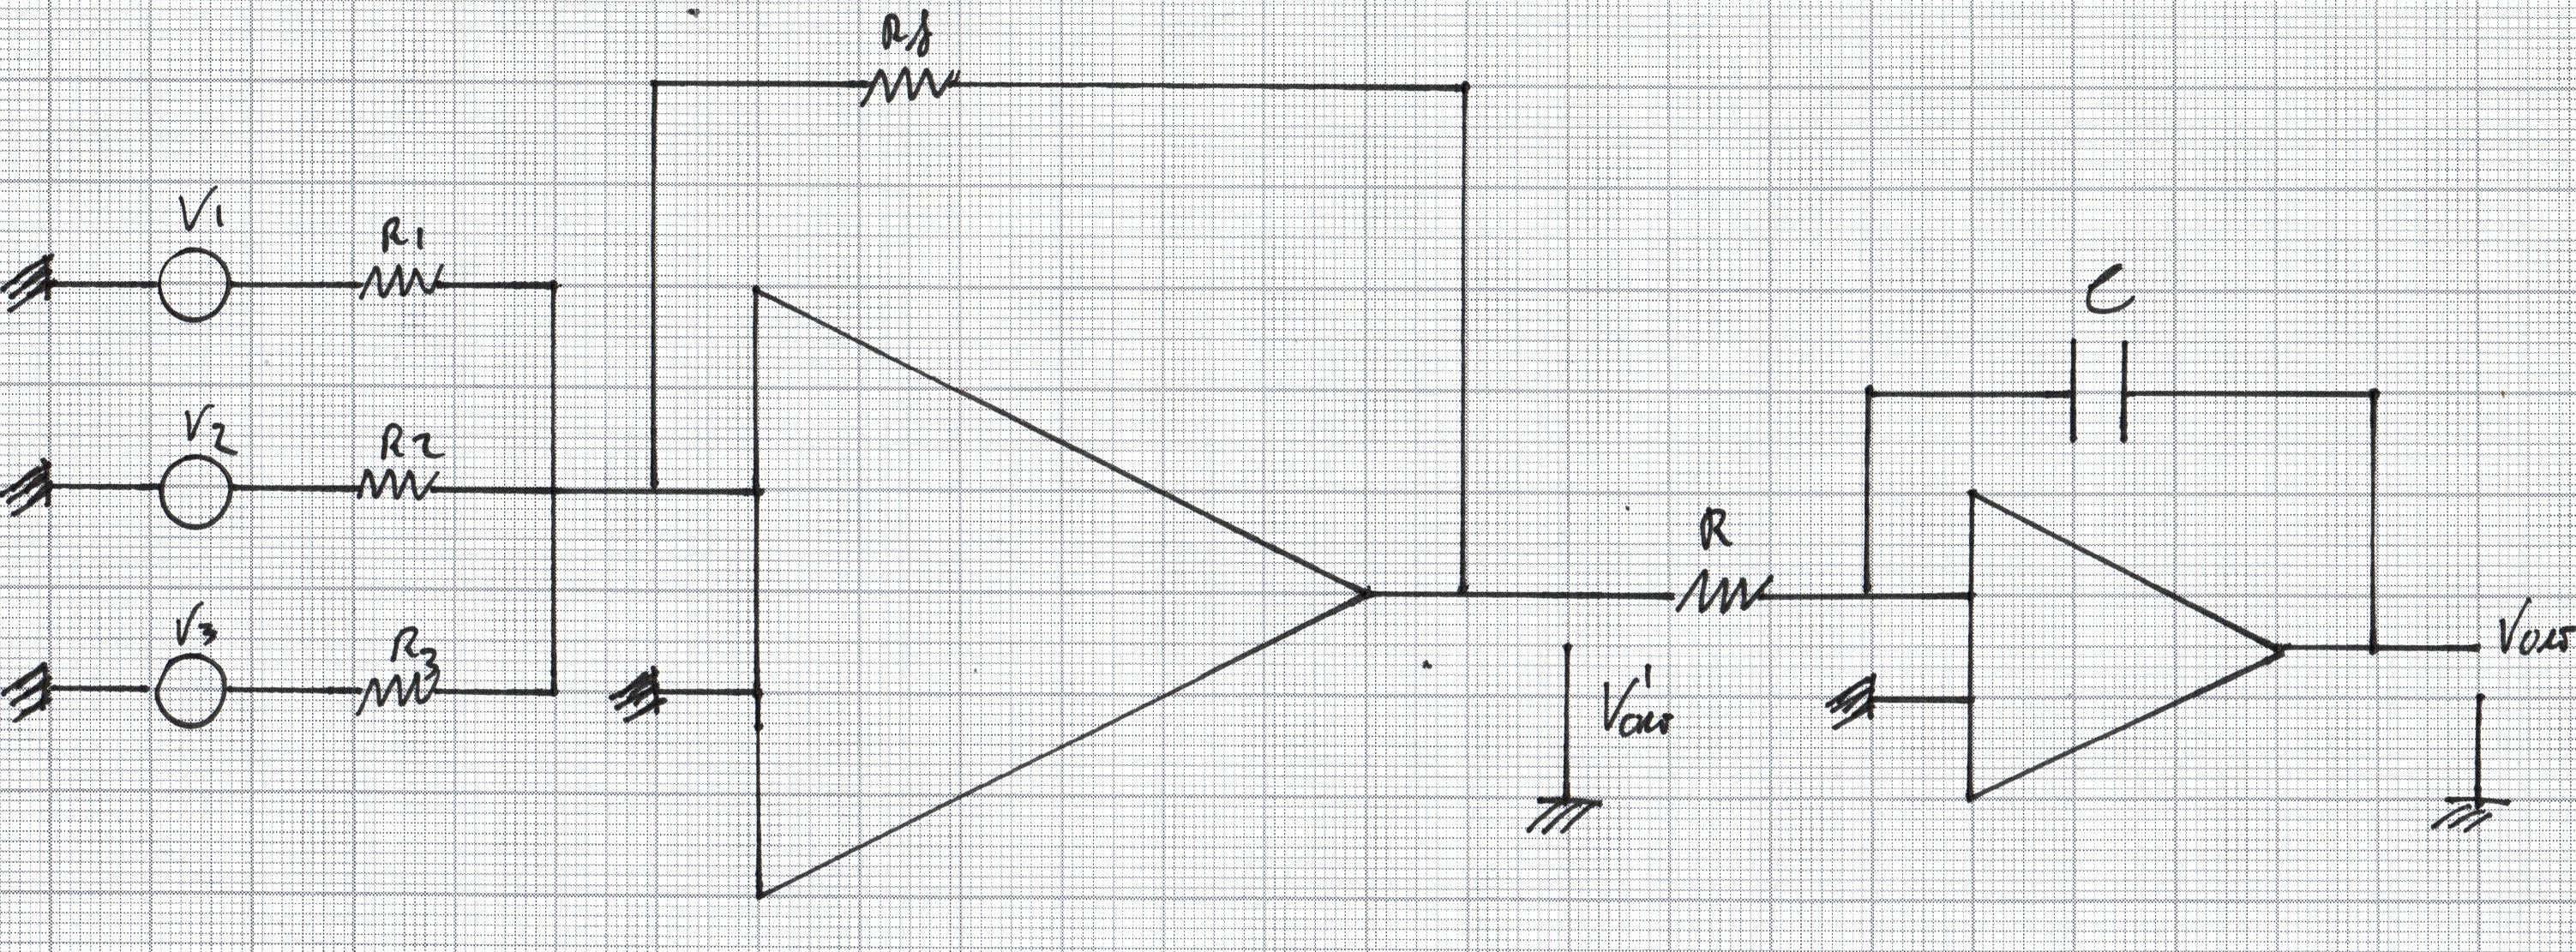 Rf
V1
R1
C
V2
R2
R
V3
R3
V'out
Vout